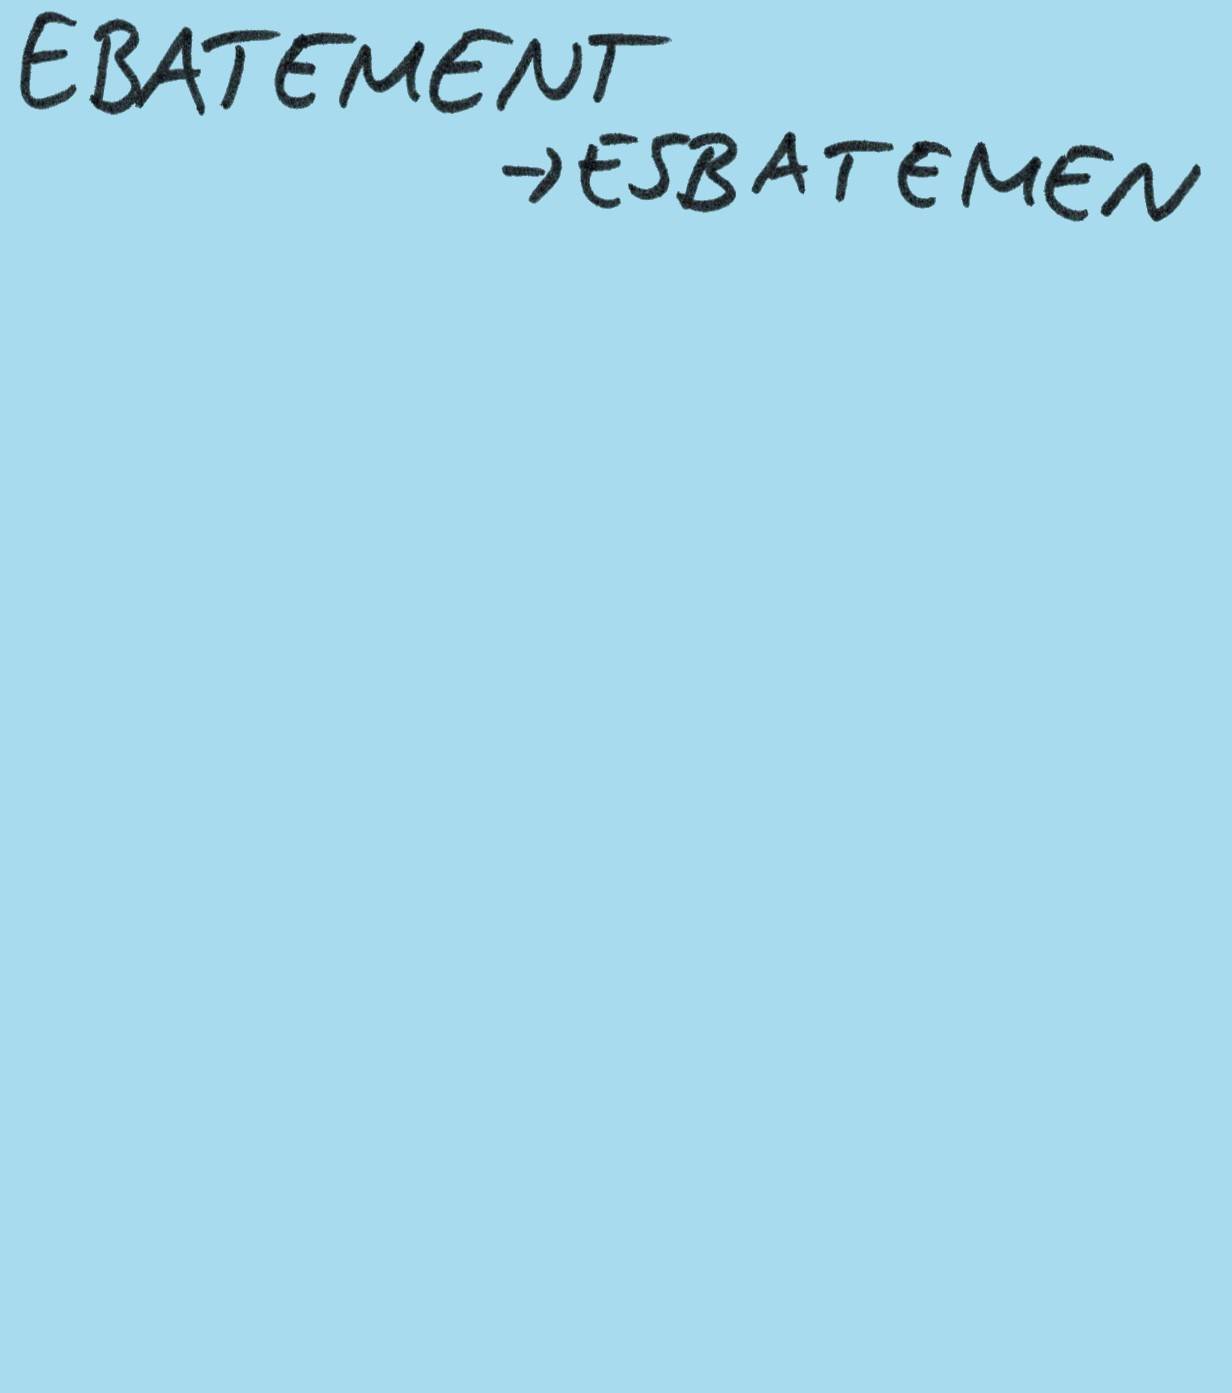 EBATEMENT
→ESBATEMEN